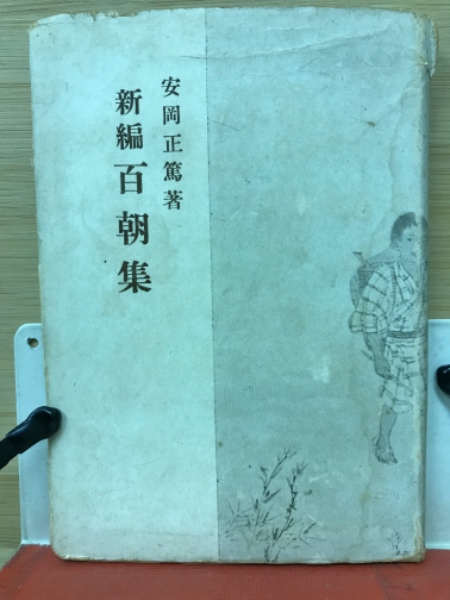 安岡正篤著
新編百朝集